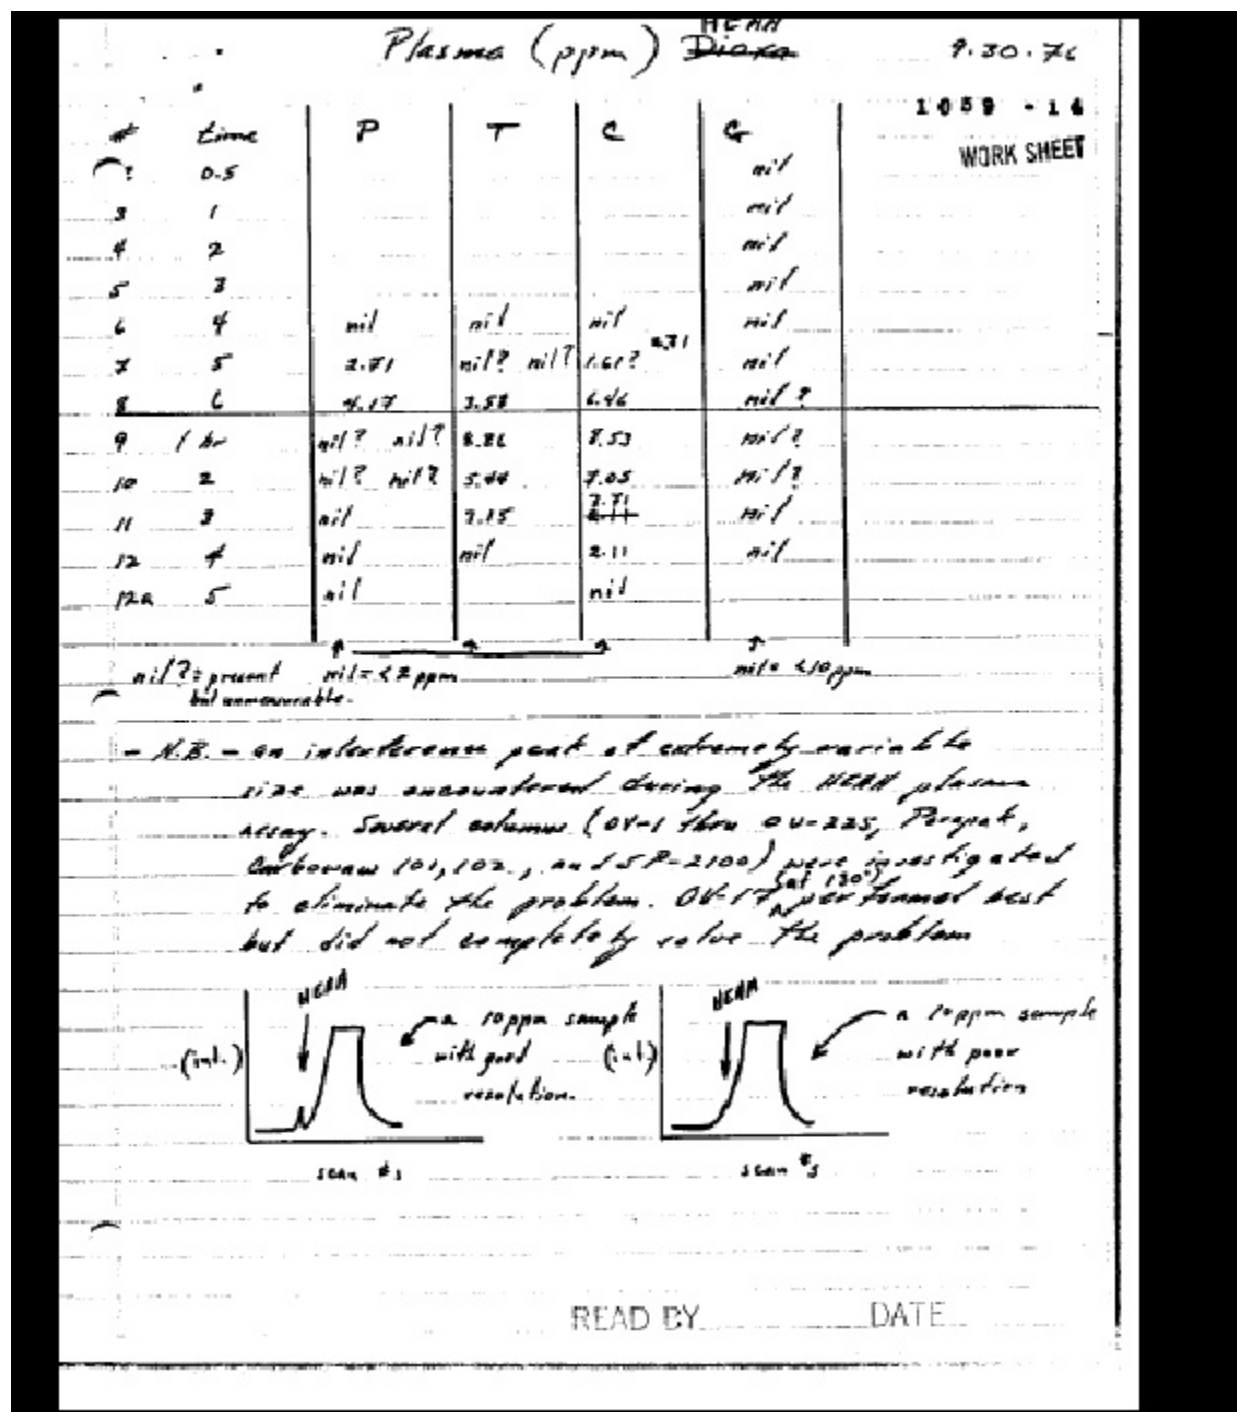 Plasma (ppm) HEAA
9.30.76
1059 - 14
WORK SHEET
# time P T C G
? 0.5 nil
3 1 nil
4 2 nil
5 3 nil
6 4 nil nil nil nil
7 5 nil? nil? 1.61? nil
8 6 4.17 3.58 6.46 nil?
9 1 hr nil? nil? 8.86 8.53 nil?
10 2 nil? nil? 5.44 7.05 nil?
11 3 nil nil
12 4 nil nil 2.11 nil
12a 5 nil nil
nil? = present nil = < 2 ppm nil = < 10 ppm
but unmeasurable.
- N.B. - an interference peak of extremely variable
size was encountered during the HEAA plasma
assay. Several columns (OV-1 thru OV-225, Poropak,
Carbowax 101, 102, and SP-2100) were investigated
to eliminate the problem. OV-17 (at 130°) performed best
but did not completely solve the problem
HEAA
(int.)
a 10 ppm sample
with good
resolution.
scan #s
HEAA
(int)
a 10 ppm sample
with poor
resolution
scan #s
READ BY DATE